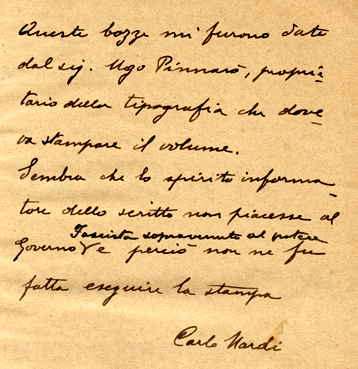 Queste bozze mi furono date
dal sig. Ugo Pinnarò, proprie-
tario della tipografia che dove-
va stampare il volume.
Sembra che lo spirito informa-
tore dello scritto non piacesse al
Fascista sopravvenuto al potere
Governo e perciò non ne fu
fatta eseguire la stampa
Carlo Nardi